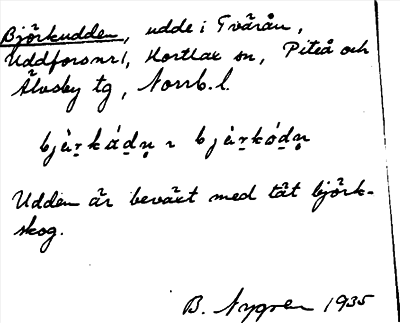 Björkudden, udde i Tvärån,
Uddforsnr1, Hortlax sn, Piteå och
Älvsby tg, Norrb. l.
bjùr̥kúdn̥ ~ bjùr̥kódn̥
Udden är beväxt med tät björk-
skog.
B. Nygren 1935